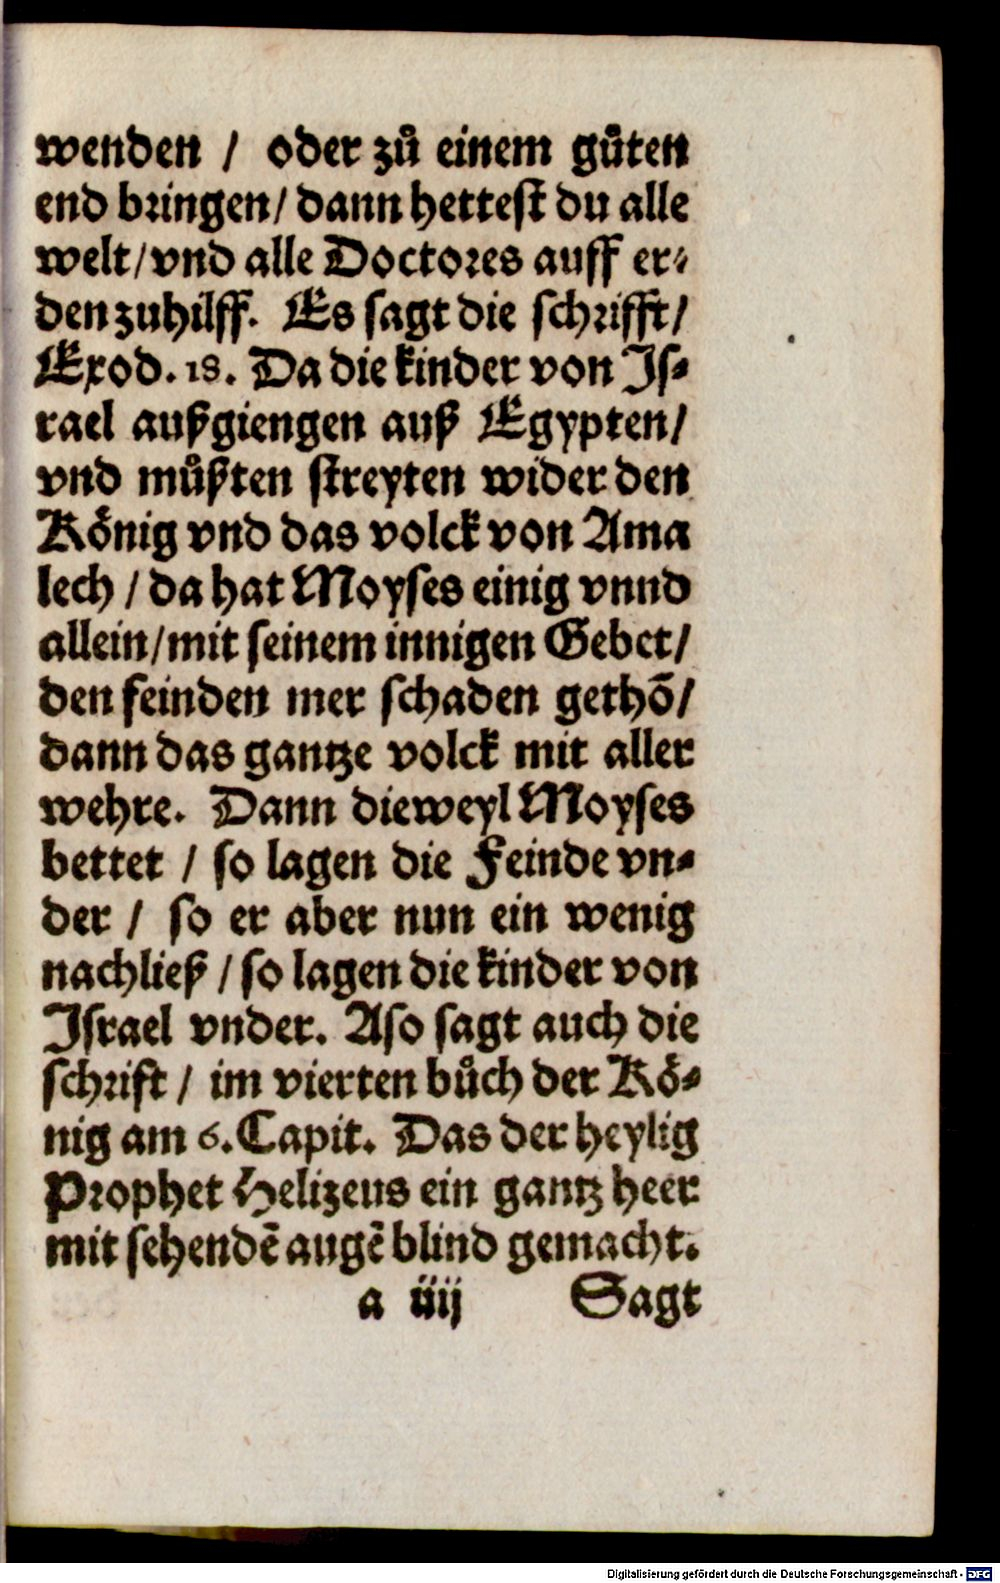 wenden / oder zů einem gůten
end bringen / dann hettest du alle
welt / vnd alle Doctores auff er-
den zuhilff. Es sagt die schrifft /
Exod. 18. Da die kinder von Is-
rael außgiengen auß Egypten /
vnd můßten streyten wider den
König vnd das volck von Ama
lech / da hat Moyses einig vnnd
allein / mit seinem innigen Gebet /
den feinden mer schaden gethō /
dann das gantze volck mit aller
wehre. Dann dieweyl Moyses
bettet / so lagen die Feinde vn-
der / so er aber nun ein wenig
nachließ / so lagen die kinder von
Israel vnder. Aso sagt auch die
schrift / im vierten bůch der Kö-
nig am 6. Capit. Das der heylig
Prophet Helizeus ein gantz heer
mit sehendē augē blind gemacht.
a iiij Sagt
Digitalisierung gefördert durch die Deutsche Forschungsgemeinschaft - DFG